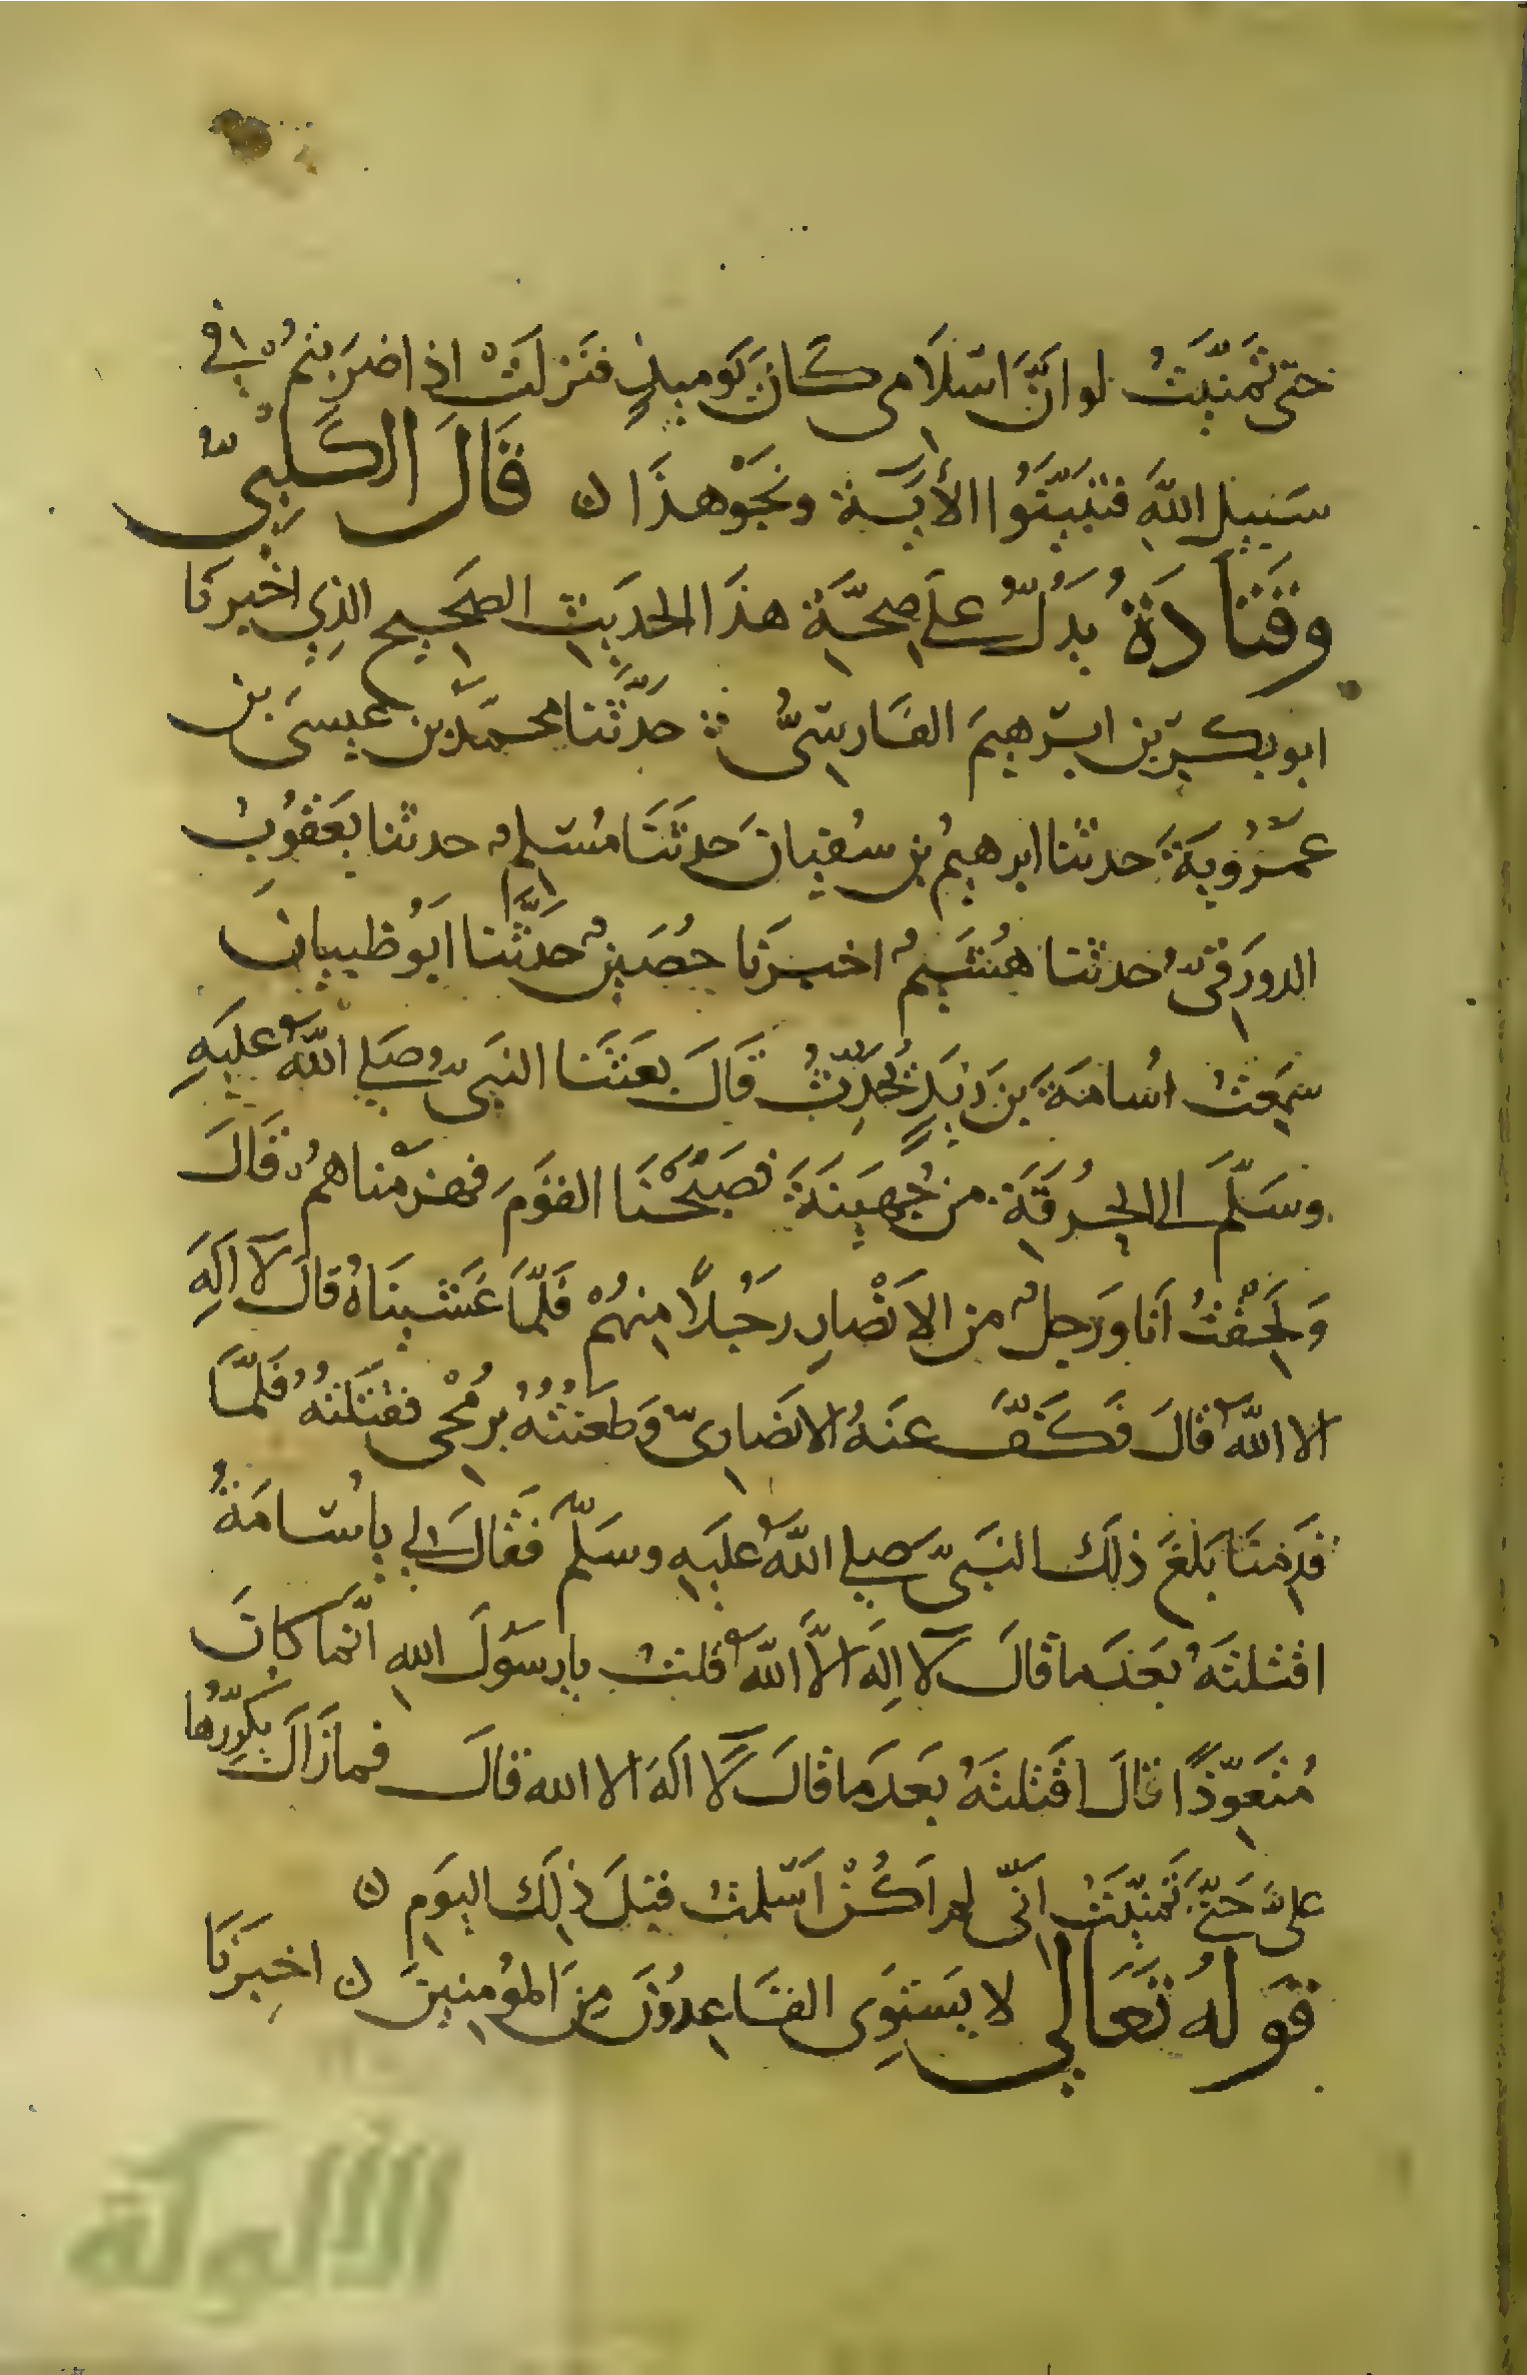 حتى تمنيت لو انّ اسلامى كان يوميذٍ فنزلت اذا ضربتم في
سبيل الله فتبيّنوا الأية ونحو هذا ن قال الكلبىّ
وقتادة يدلّ على صحّة هذا الحديث الصحيح الذي اخبرنا
ابو بكر بن ابرهيم الفارسىّ حدّثنا محمّد بن عيسى بن
عمرويه حدثنا ابرهيم بن سفيان حدثنا مسلم حدثنا يعقوب
الدورقىّ حدثنا هشيم اخبرنا حصين حدّثنا ابو ظبيان
سمعت اسامة بن زيدٍ يحدّث قال بعثنا النبىّ صلى الله عليه
وسلّم الى الحرقة من جهينة فصبّحنا القوم فهزمناهم قال
ولحقت انا ورجل من الانصار رجلاً منهم فلمّا غشيناه قال لا اله
الا الله قال فكفّ عنه الانصارىّ وطعنته برمحى فقتلته فلمّا
قدمنا بلغ ذلك النبىّ صلى الله عليه وسلّم فقال لي ياسامة
اقتلته بعد ما قال لا اله الّا الله قلت يا رسول الله انّما كان
متعوّذًا قال اقتلته بعد ما قال لا اله الا الله قال فما زال يكرّرها
علىّ حتّى تمنيّت انّى لم اكن اسلمت قبل ذلك اليوم ن
قوله تعالى لا يستوى القاعدون من المؤمنين ن اخبرنا
الألوكة